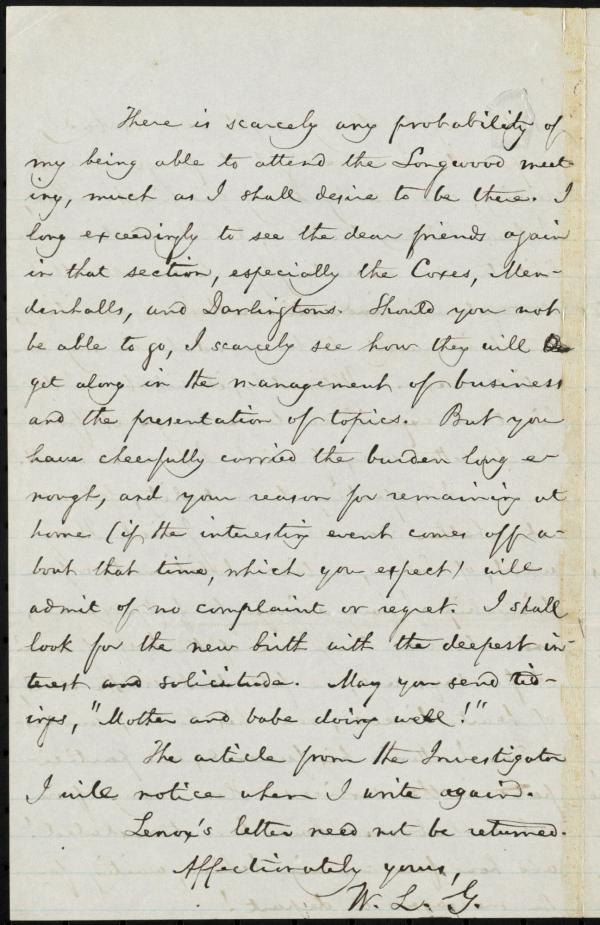 There is scarcely any probability of
my being able to attend the Longwood meet
ing, much as I shall desire to be there. I
long exceedingly to see the dear friends again
in that section, especially the Coxes, Men-
denhalls, and Darlingtons. Should you not
be able to go, I scarcely see how they will
get along in the management of business
and the presentation of topics. But you
have cheerfully carried the burden long e-
nough, and your reason for remaining at
home (if the interesting event comes off a-
bout that time, which you expect) will
admit of no complaint or regret. I shall
look for the new birth with the deepest in-
terest and solicitude. May you send tid-
ings, "Mother and babe doing well!"
The article from the Investigator
I will notice when I write again.
Lenox's letter need not be returned.
Affectionately yours,
W. L. G.